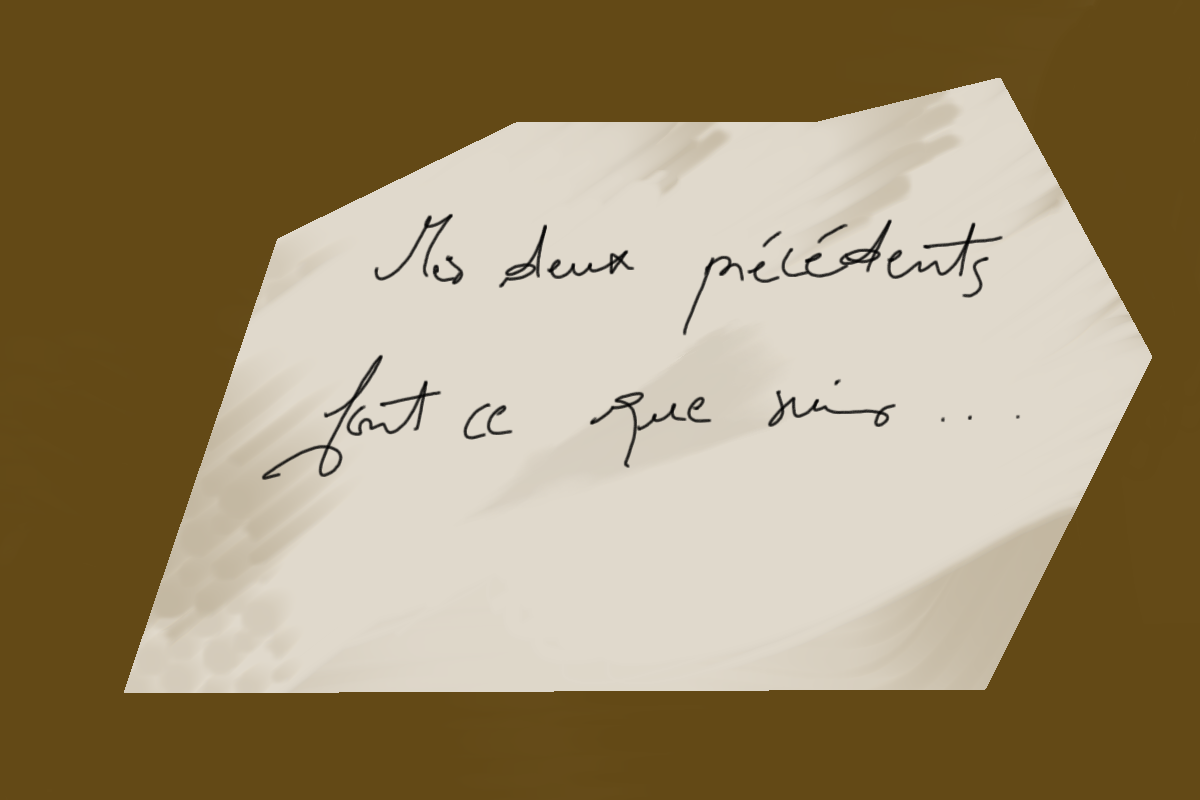 Mes deux précédents
font ce que suis....